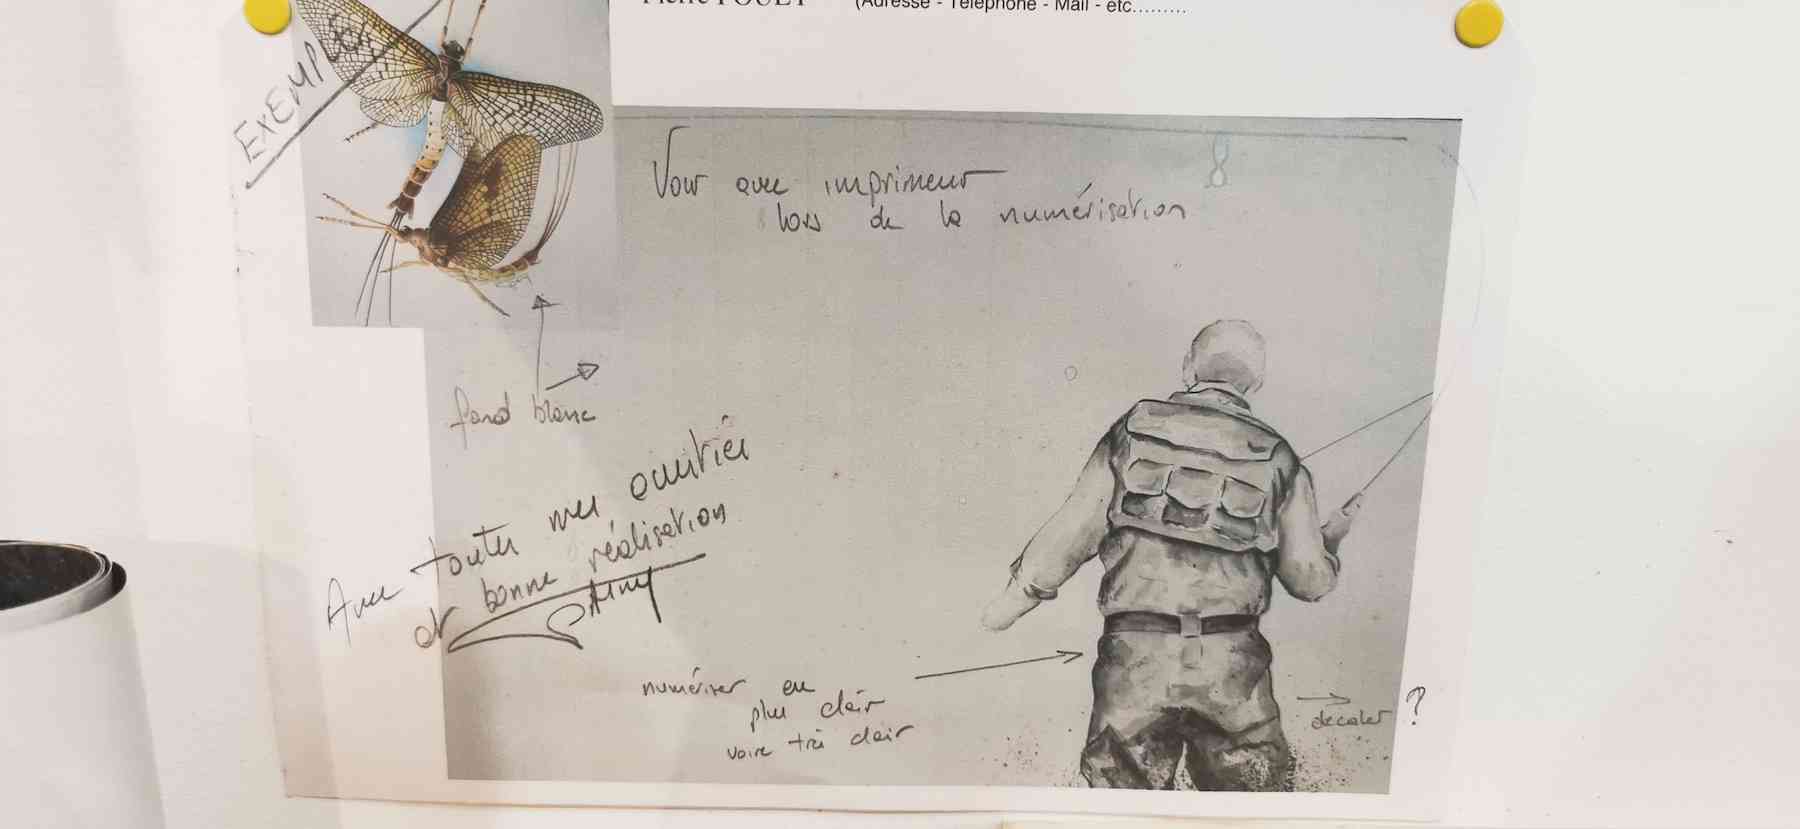 Pierre POUET (Adresse - Téléphone - Mail - etc.........
EXEMPLE
Voir avec imprimeur
lors de la numérisation
fond blanc
Avec toutes mes amitiés
et bonne réalisation
numériser en
plus clair
voire très clair
décaler ?